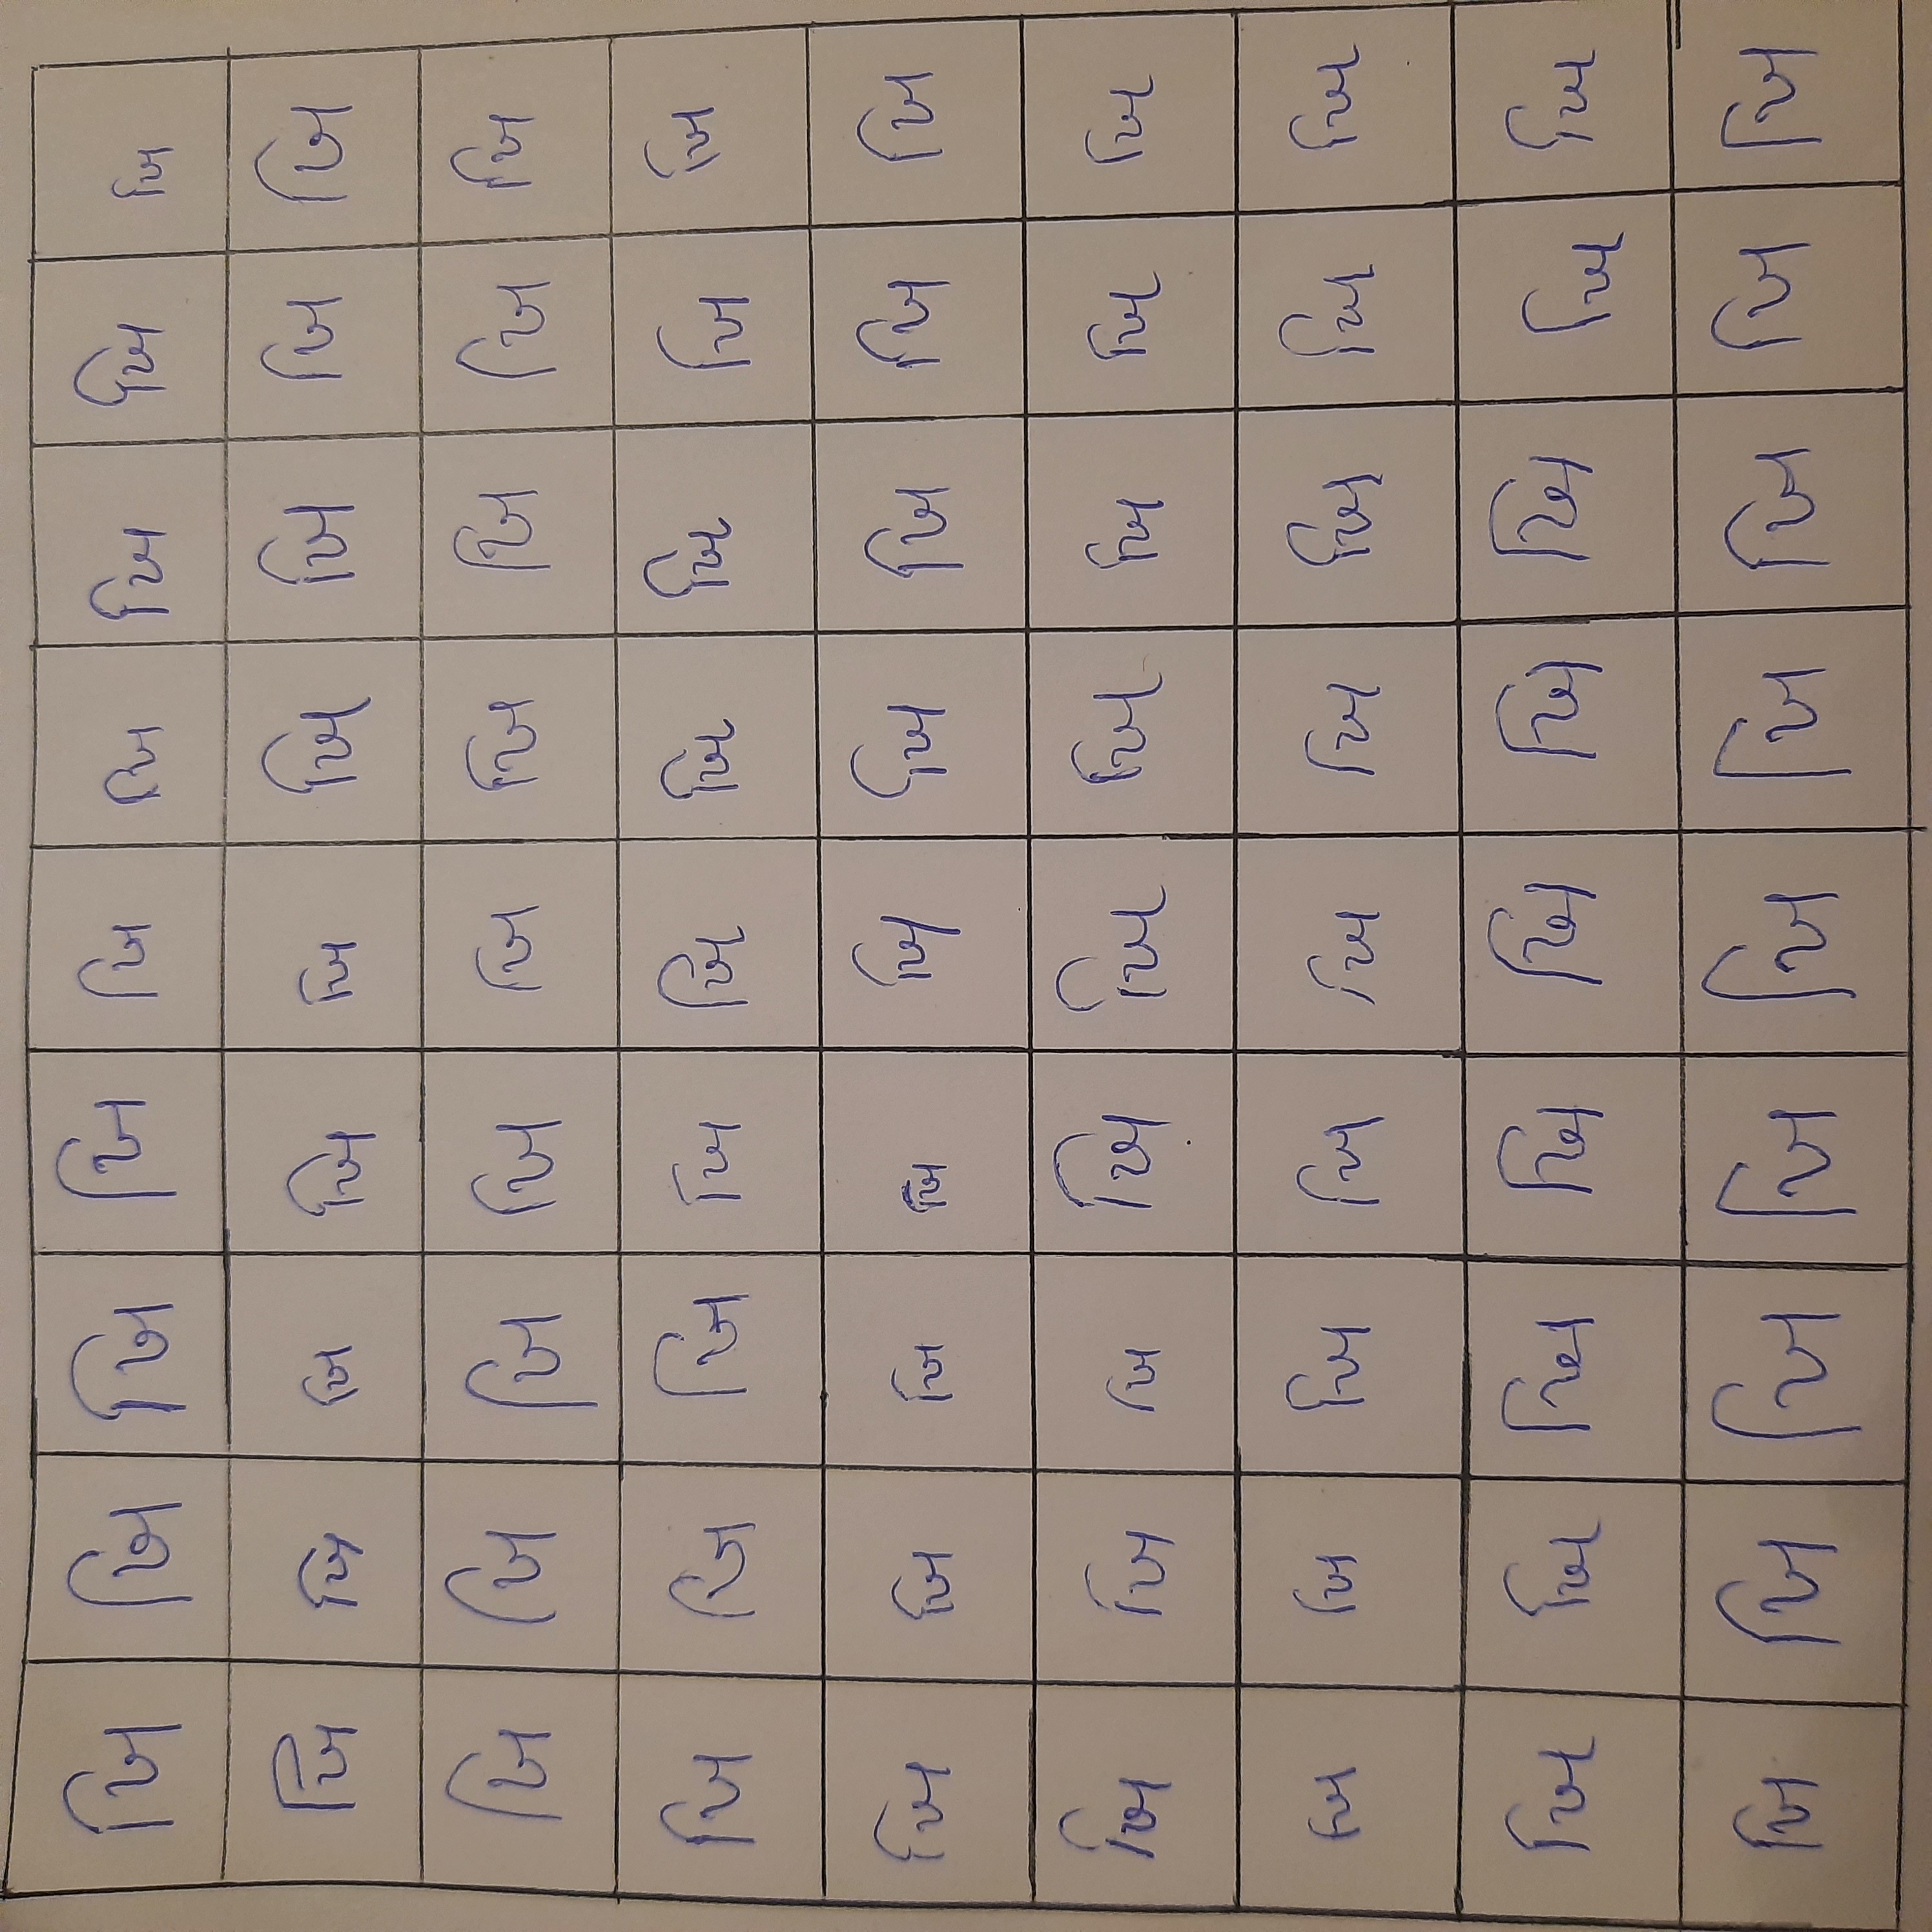 ખિ ખિ ખિ ખિ ખિ ખિ ખિ ખિ ખિ
ખિ ખિ ખિ ખિ ખિ ખિ ખિ ખિ ખિ
ખિ ખિ ખિ ખિ ખિ ખિ ખિ ખિ ખિ
ખિ ખિ ખિ ખિ ખિ ખિ ખિ ખિ ખિ
ખિ ખિ ખિ ખિ ખિ ખિ ખિ ખિ ખિ
ખિ ખિ ખિ ખિ ખિ ખિ ખિ ખિ ખિ
ખિ ખિ ખિ ખિ ખિ ખિ ખિ ખિ ખિ
ખિ ખિ ખિ ખિ ખિ ખિ ખિ ખિ ખિ
ખિ ખિ ખિ ખિ ખિ ખિ ખિ ખિ ખિ